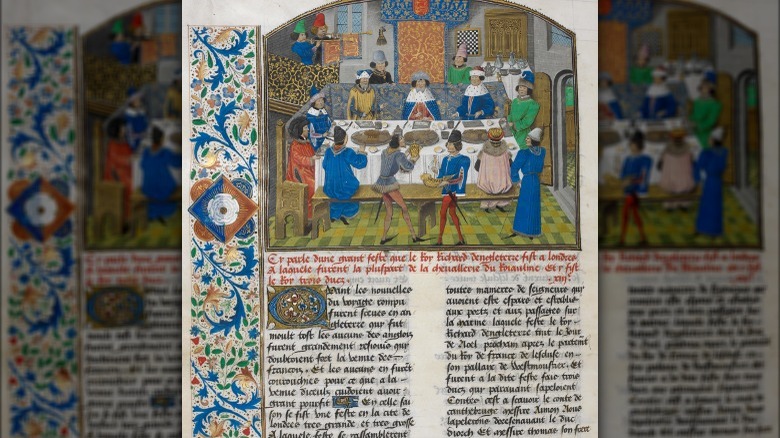 Cy parle dune grant feste que le Roy Richard dengleterre fist a londres
A laquele furent la pluspart de la chevallerie du Roiaulme Et y fist
le Roy trois ducz xiije
Avant les nouvelles
du voyage rompu
furent sceues en an
gleterre qui fut
moult tost les aucuns des anglois
furent grandement resiouis qui
doubtoient fort la venue des
francois. Et les aucuns en furent
courouchies pour ce que a la
venue diceulx cuidoient avoir
grant prouffit Et y celle sai
son se fist une feste en la cite de
londres tres grande et tres grosse
A laquele feste se rassamblerent
toutes manieres de seigneurs qui
avoient este espars et establis
aux portz et aux passages sur
la marine laquele feste le Roy
Richard dengleterre tint le Jour
de Noel prochain apres le partement
du Roy de france de lescluse en
son pallaix de Westmoustier. Et
furent a la dite feste fais trois
ducz qui paravant sapeloient
Contes cest a scavoir le conte de
cantebruge messire Aimon Nous
lapelerons doresenavant le duc
diorch Et messire thomas son frere